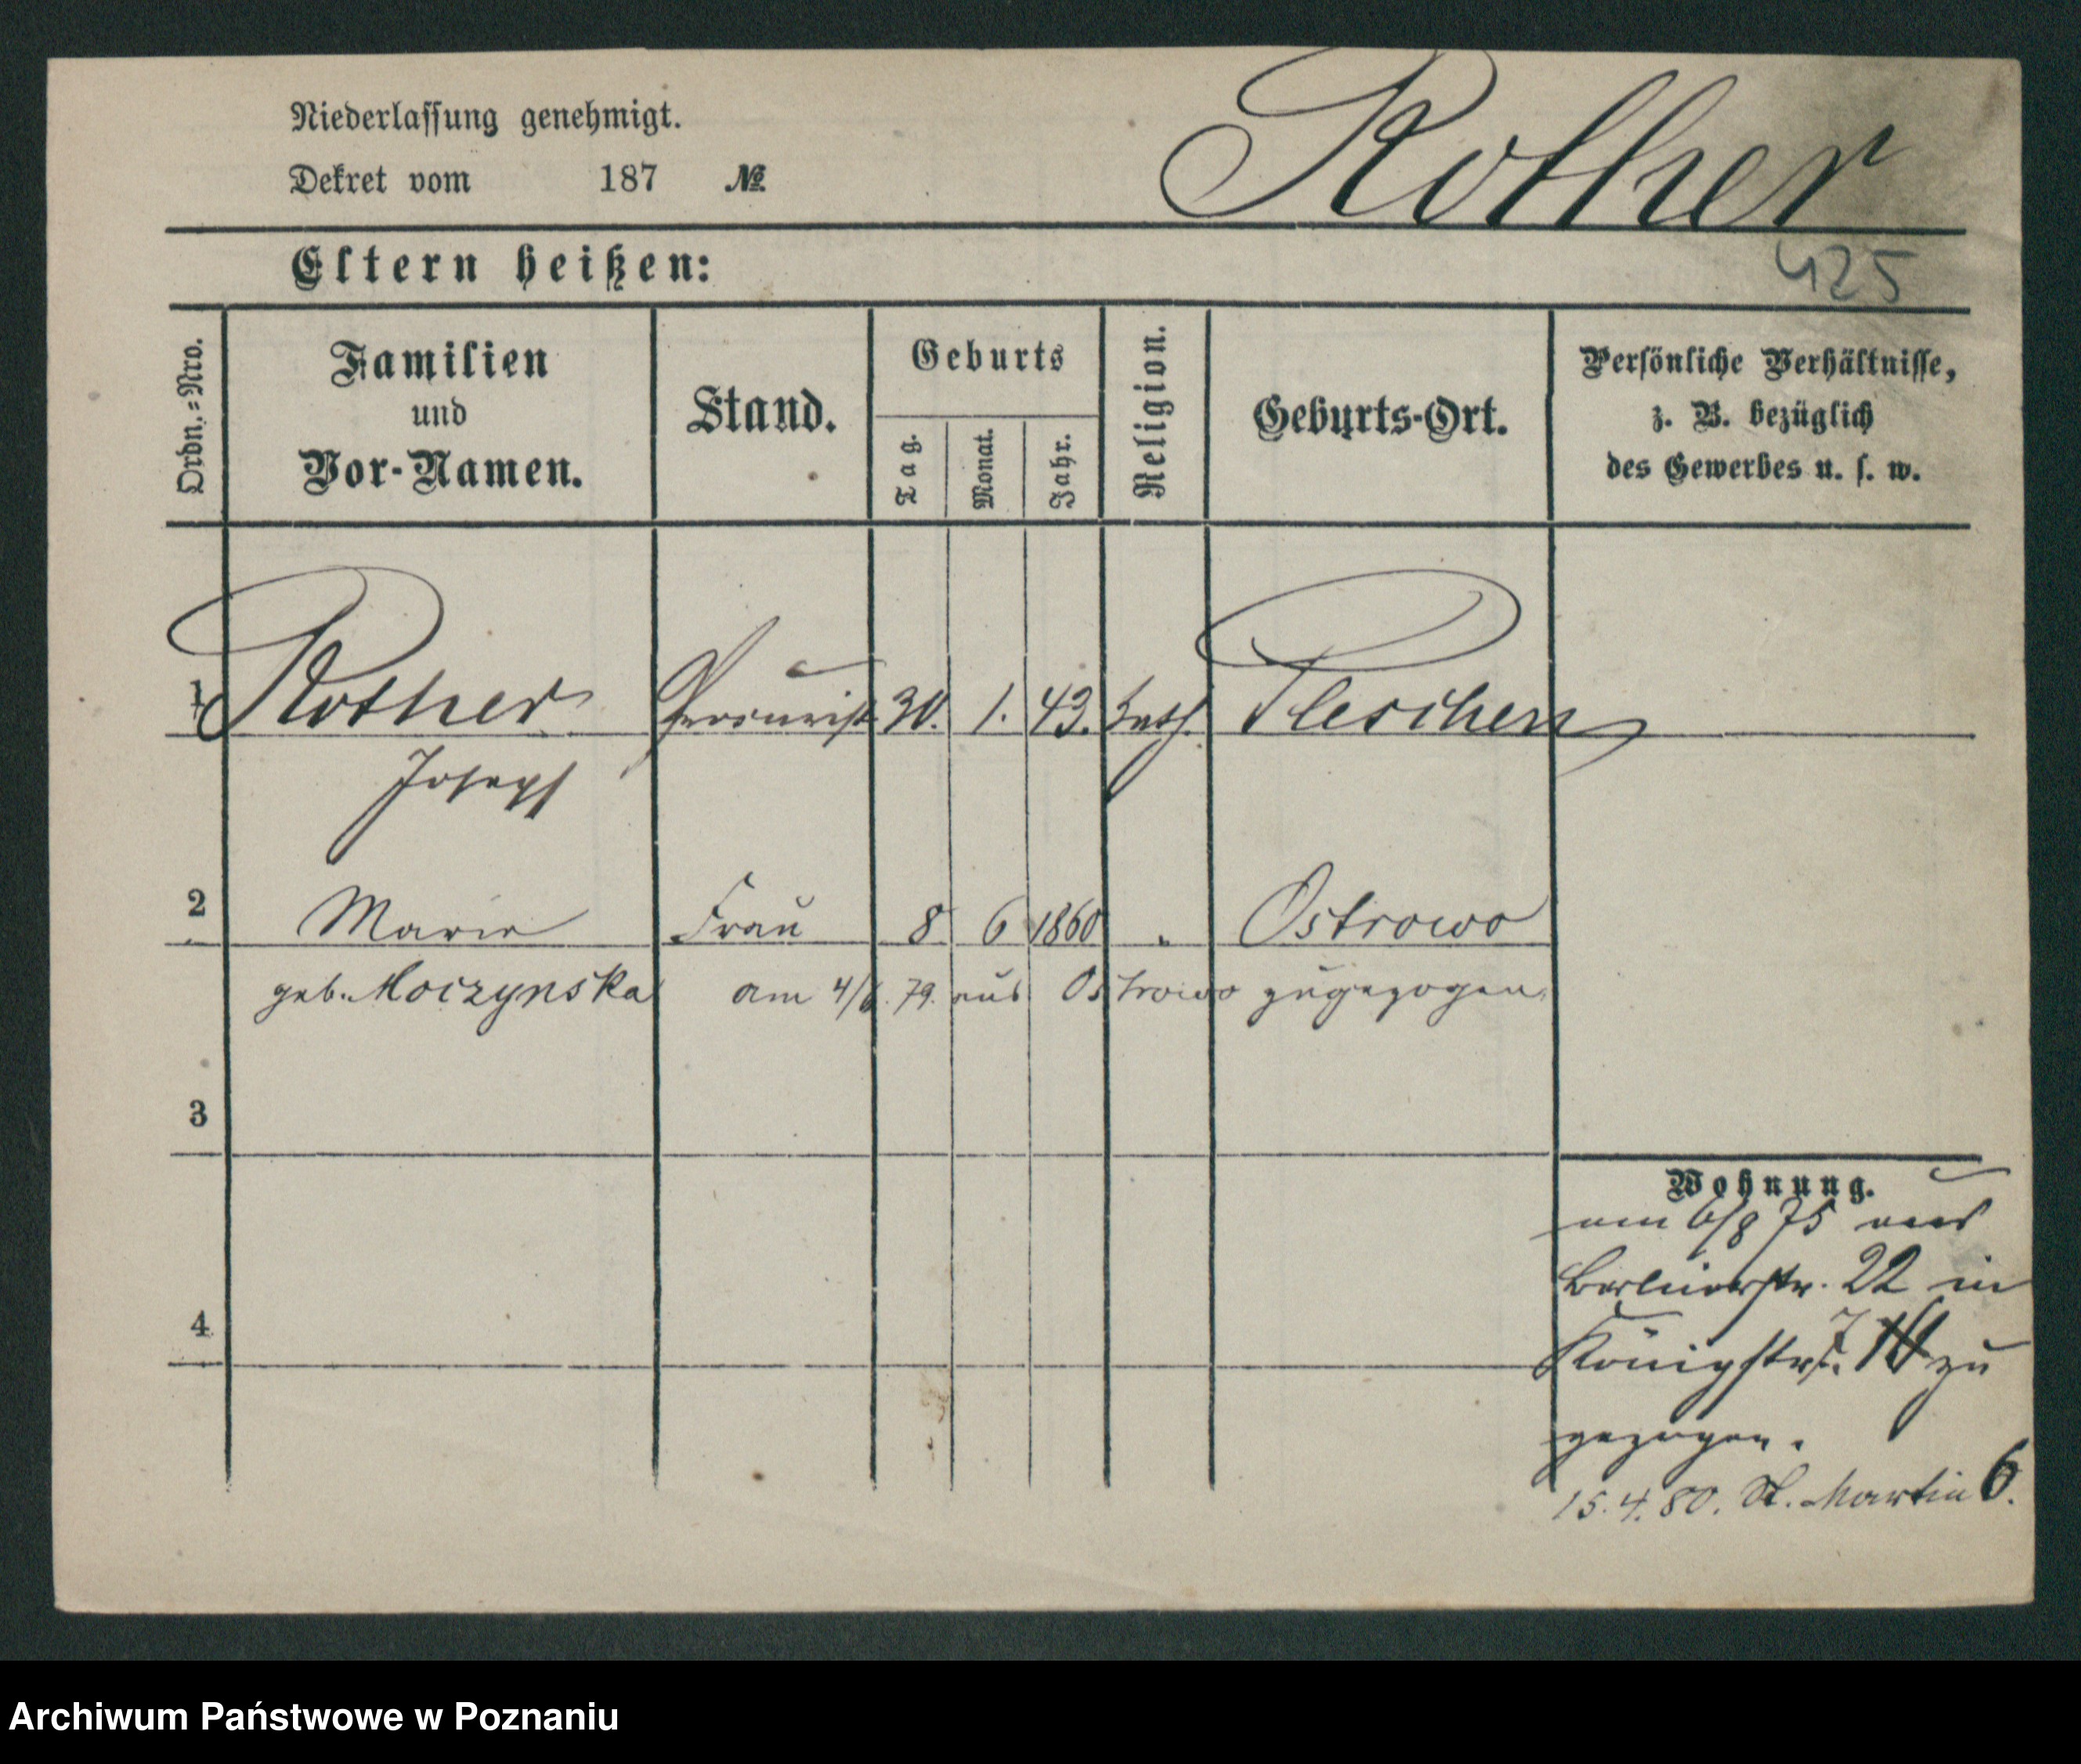 Niederlassung genehmigt.
Dekret vom 187 №
Rother
Eltern heißen:
425
Ordn.=Nro.
Familien
und
Vor-Namen.
Stand.
Geburts
Tag.
Monat.
Jahr.
Religion.
Geburts-Ort.
Persönliche Verhältnisse,
z. B. bezüglich
des Gewerbes u. s. w.
1 Rother Procurist 30. 1. 43. kath. Pleschen
Joseph
2 Marie Frau 8 6 1860 " Ostrowo
geb. Moczynska am 4/6. 79. aus Ostrowo zugezogen.
3
4
Wohnung.
am 6/8 75 aus
Berlinerstr. 22 in
Königstr. zu
gezogen.
15.4.80. St. Martin 6.
Archiwum Państwowe w Poznaniu